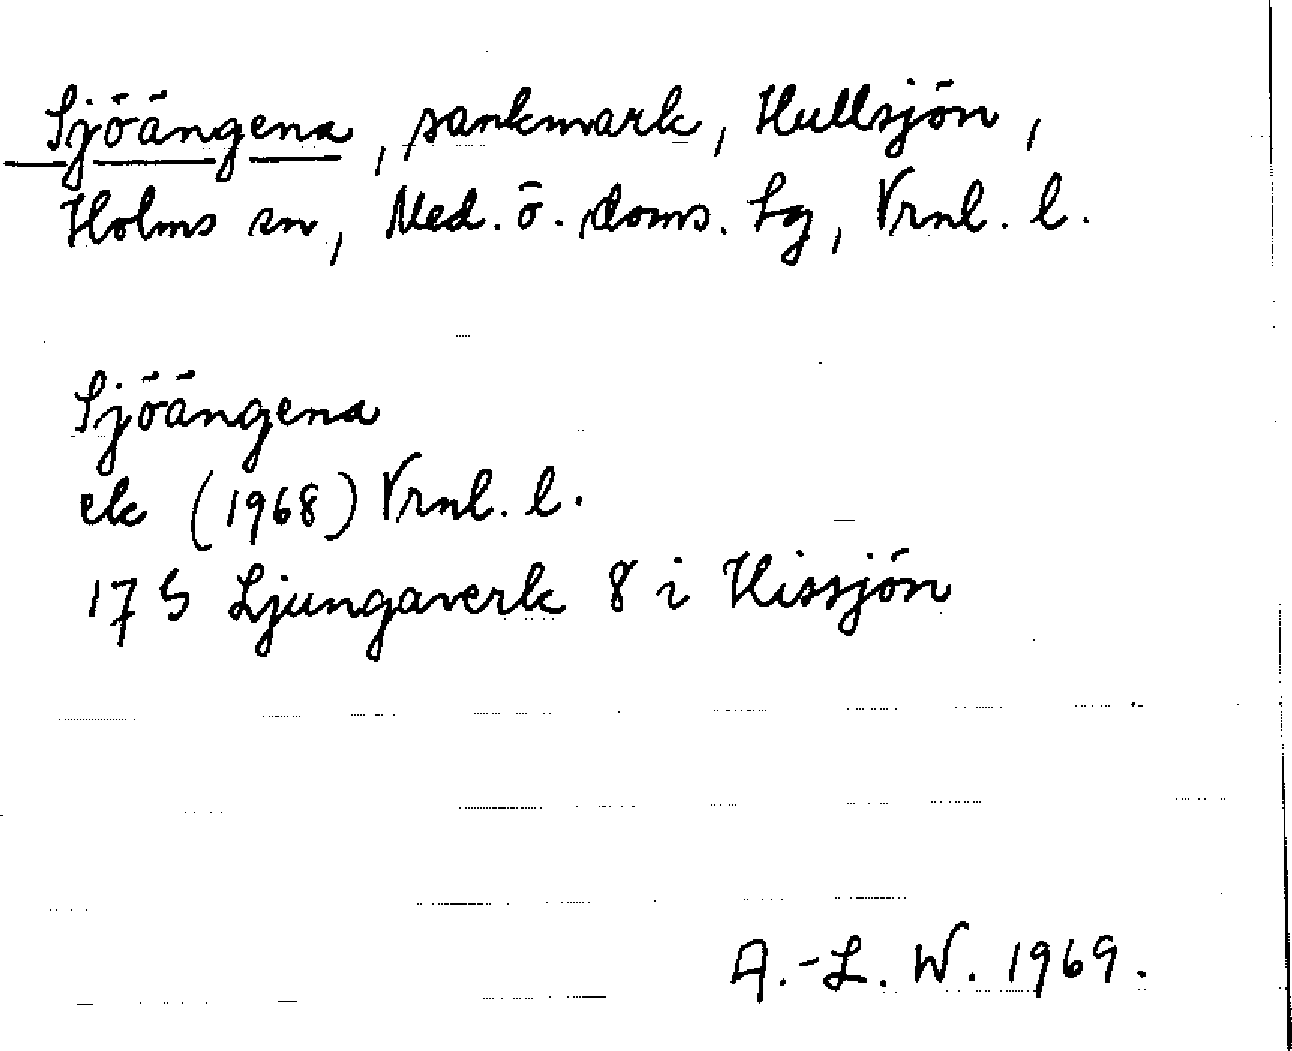 Sjöängena, sankmark, Hullsjön,
Holms sn, Med. ö. doms. Lg, Vrnl. l.
Sjöängena
ek (1968) Vrnl. l.
17 S Ljungaverk 8 i Hissjön
A.-L. W. 1969.